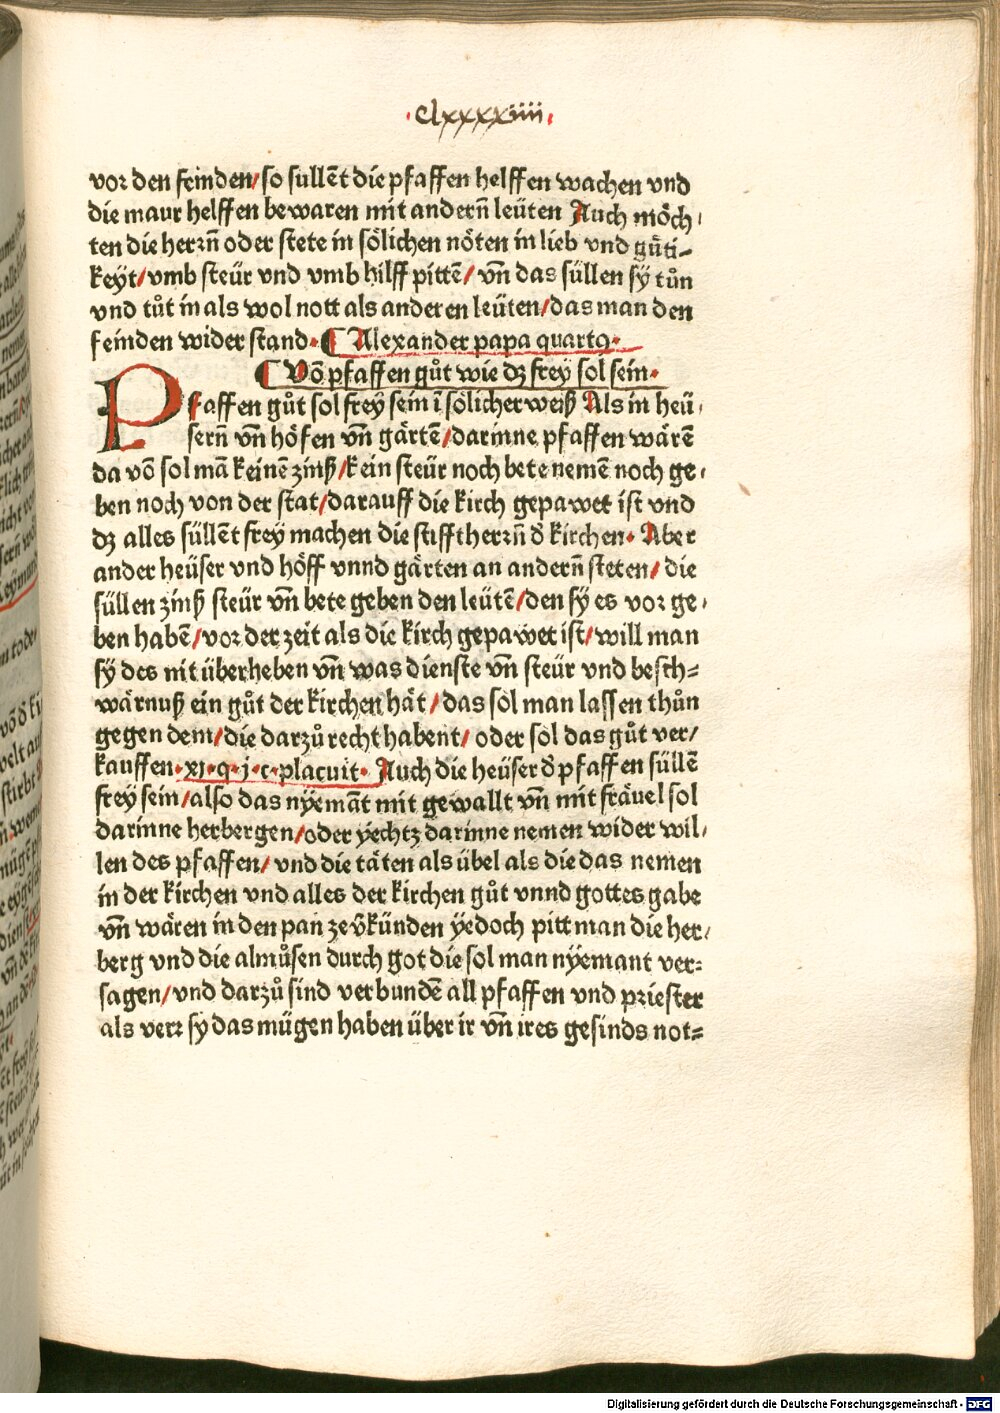 ·clxxxxiiii·
vor den feinden/ so sullēt die pfaffen helffen wachen vnd
die maur helffen bewaren mit andern̄ leüten Auch möch⸗
ten die herrn̄ oder stete in sölichen nöten in lieb vnd gůti⸗
keyt/ vmb steür vnd vmb hilff pittē/ vn̄ das süllen sÿ tůn
vnd tůt in als wol nott als anderen leüten/ das man den
feinden wider stand· ¶ Alexander papa quartꝯ·
¶ Uō pfaffen gůt wie dz frey sol sein·
Pfaffen gůt sol freÿ sein ī sölicher weiß Als in heü⸗
sern̄ vn̄ höfen vn̄ gärtē/ darinne pfaffen wärē
da vō sol mā keinē zinß/ kein steür noch bete nemē noch ge⸗
ben noch von der stat/ darauff die kirch gepawet ist vnd
dz alles süllēt freÿ machen die stifftherrn̄ d̄ kirchen· Aber
ander heüser vnd höff vnnd gärten an andern̄ steten/ die
süllen zinß steür vn̄ bete geben den leütē/ den sÿ es vor ge⸗
ben habē/ vor der zeit als die kirch gepawet ist/ will man
sÿ des nit überheben vn̄ was dienste vn̄ steür vnd besch⸗
wärnuß ein gůt der kirchen hät/ das sol man lassen thůn
gegen dem/ die darzů recht habent/ oder sol das gůt ver/
kauffen·xj·q·j·c·placuit· Auch die heüser d̄ pfaffen süllē
frey sein/ also das nÿemāt mit gewallt vn̄ mit fräuel sol
darinne herbergen/ oder ÿechtz darinne nemen wider wil⸗
len des pfaffen/ vnd die täten als übel als die das nemen
in der kirchen vnd alles der kirchen gůt vnnd gottes gabe
vn̄ wären in den pan ze v̄künden ÿedoch pitt man die her⸗
berg vnd die almůsen durch got die sol man nÿemant ver⸗
sagen/ vnd darzů sind verbundē all pfaffen vnd priester
als verr sy das mügen haben über ir vn̄ ires gesinds not⸗
Digitalisierung gefördert durch die Deutsche Forschungsgemeinschaft - DFG